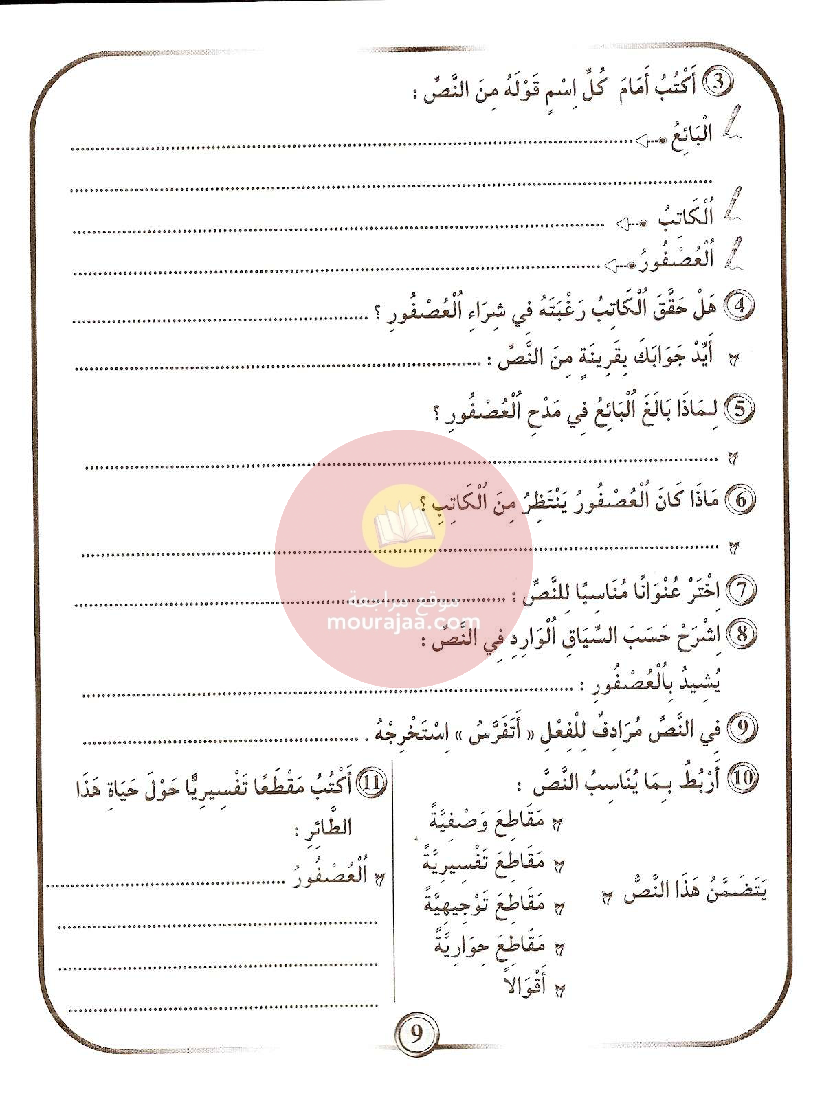 ③ أَكْتُبُ أَمَامَ كُلِّ اِسْمٍ قَوْلَهُ مِنَ النَّصِّ :
الْبَائِعُ
اُلْكَاتِبُ
اُلْعُصْفُورُ
④ هَلْ حَقَّقَ اُلْكَاتِبُ رَغْبَتَهُ فِي شِرَاءِ اُلْعُصْفُورِ ؟
أَيِّدْ جَوَابَكَ بِقَرِينَةٍ مِنَ النَّصِّ :
⑤ لِمَاذَا بَالَغَ اُلْبَائِعُ فِي مَدْحِ اُلْعُصْفُورِ ؟
⑥ مَاذَا كَانَ اُلْعُصْفُورُ يَنْتَظِرُ مِنَ اُلْكَاتِبِ ؟
⑦ اِخْتَرْ عُنْوَانًا مُنَاسِبًا لِلنَّصِّ :
موقع مراجعة
mourajaa.com
⑧ اِشْرَحْ حَسَبَ السِّيَاقِ اُلْوَارِدِ فِي النَّصِّ :
يُشِيدُ بِاُلْعُصْفُورِ :
⑨ فِي النَّصِّ مُرَادِفٌ لِلْفِعْلِ « أَتَفَرَّسُ » اِسْتَخْرِجْهُ .
⑩ أَرْبُطُ بِمَا يُنَاسِبُ النَّصَّ :
مَقَاطِعَ وَصْفِيَّةً
مَقَاطِعَ تَفْسِيرِيَّةً
يَتَضَمَّنُ هَذَا النَّصُّ
مَقَاطِعَ تَوْجِيهِيَّةً
مَقَاطِعَ حِوَارِيَّةً
أَقْوَالاً
⑪ أَكْتُبُ مَقْطَعًا تَفْسِيرِيًّا حَوْلَ حَيَاةِ هَذَا
الطَّائِرِ :
اُلْعُصْفُورُ
9